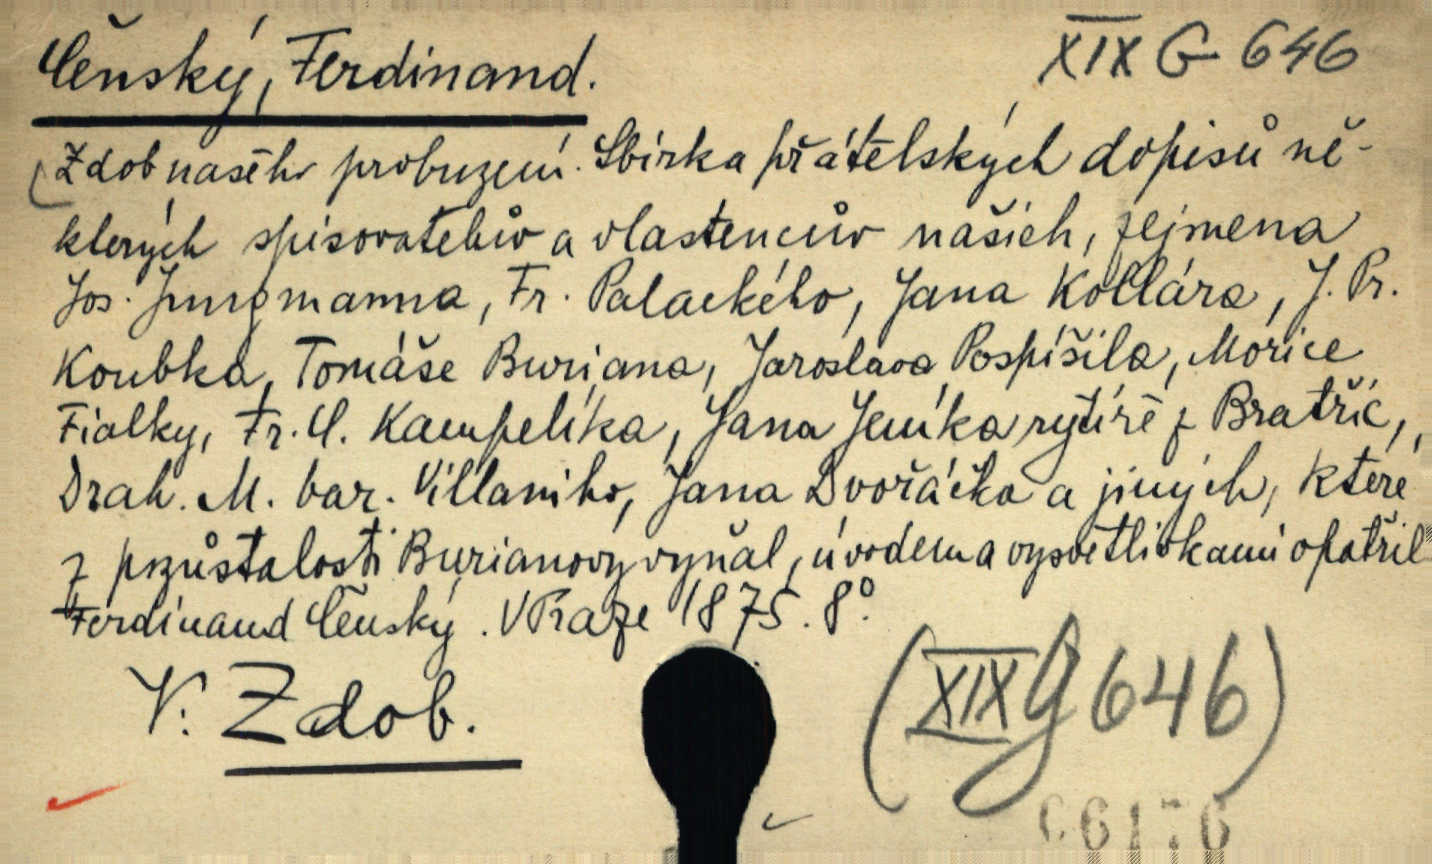 Čenský, Ferdinand.
XIX G 646
Z dob našeho probuzení. Sbírka přátelských dopisů ně-
kterých spisovatelův a vlastencův našich, zejmena
Jos. Jungmanna, Fr. Palackého, Jana Kollára, J. Pr.
Koubka, Tomáše Buriana, Jaroslava Pospíšila, Mořice
Fialky, Fr. C. Kampelíka, Jana Jeníka rytíře z Bratřic,
Drah. M. bar. Villaniho, Jana Dvořáčka a jiných, které
z pozůstalosti Burianovy vyňal, úvodem a vysvětlivkami opatřil
Ferdinand Čenský. V Praze 1875. 8°.
V. Z dob.
(XIX G 646)
C 6176